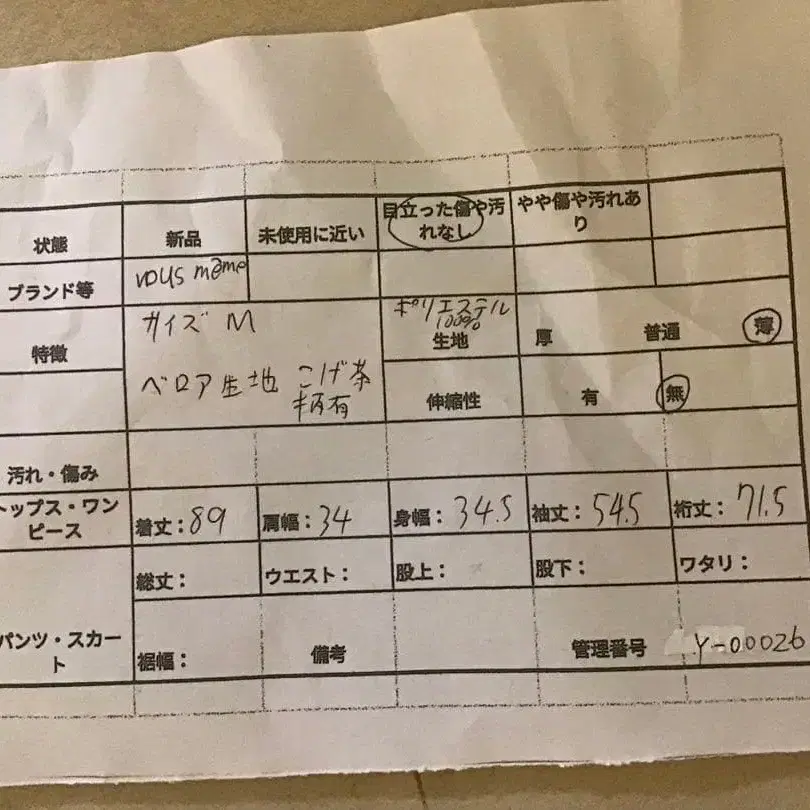 状態 新品 未使用に近い 目立った傷や汚れなし やや傷や汚れあり
ブランド等 vous mame
特徴 サイズ M ポリエステル 100% 生地 厚 普通 薄
ベロア生地 こげ茶 柄有 伸縮性 有 無
汚れ・傷み
トップス・ワンピース 着丈：89 肩幅：34 身幅：34.5 袖丈：54.5 裄丈：71.5
総丈： ウエスト： 股上： 股下： ワタリ：
パンツ・スカート 裾幅： 備考 管理番号 Y-00026